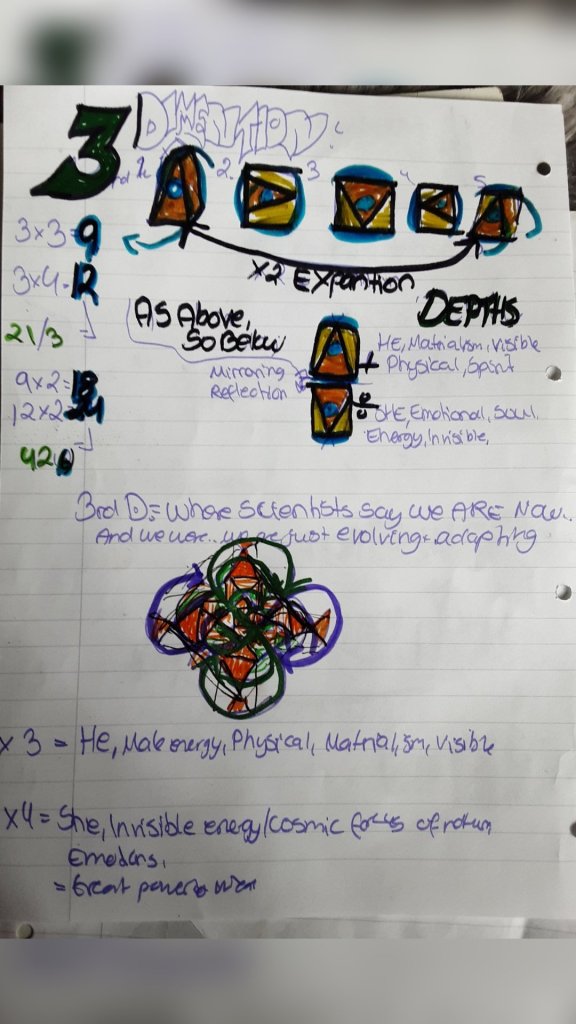 3rd DIMENTION:
1. 2. 3 4 5
x2 EXPANTION
3x3=9
3x4=12
21/3
9x2=18
12x2=24
420
AS Above,
So Below
Mirroring
Reflection
DEPTHS
+
HE, Matrialism, Visible
Physical, Spirit
SHE, Emotional, Soul.
Energy, Invisible,
3rd D:= Where Scientists say we ARE Now..
And we were.. we are just evolving + adapting
x3 = He, Male energy, Physical, Matrialism, Visible
x4 = She, Invisible energy/cosmic of
Emotions,
= Great